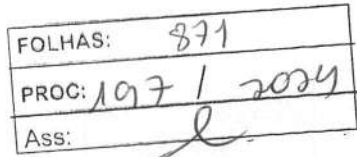 FOLHAS: 871
PROC: 197 / 2024
Ass: